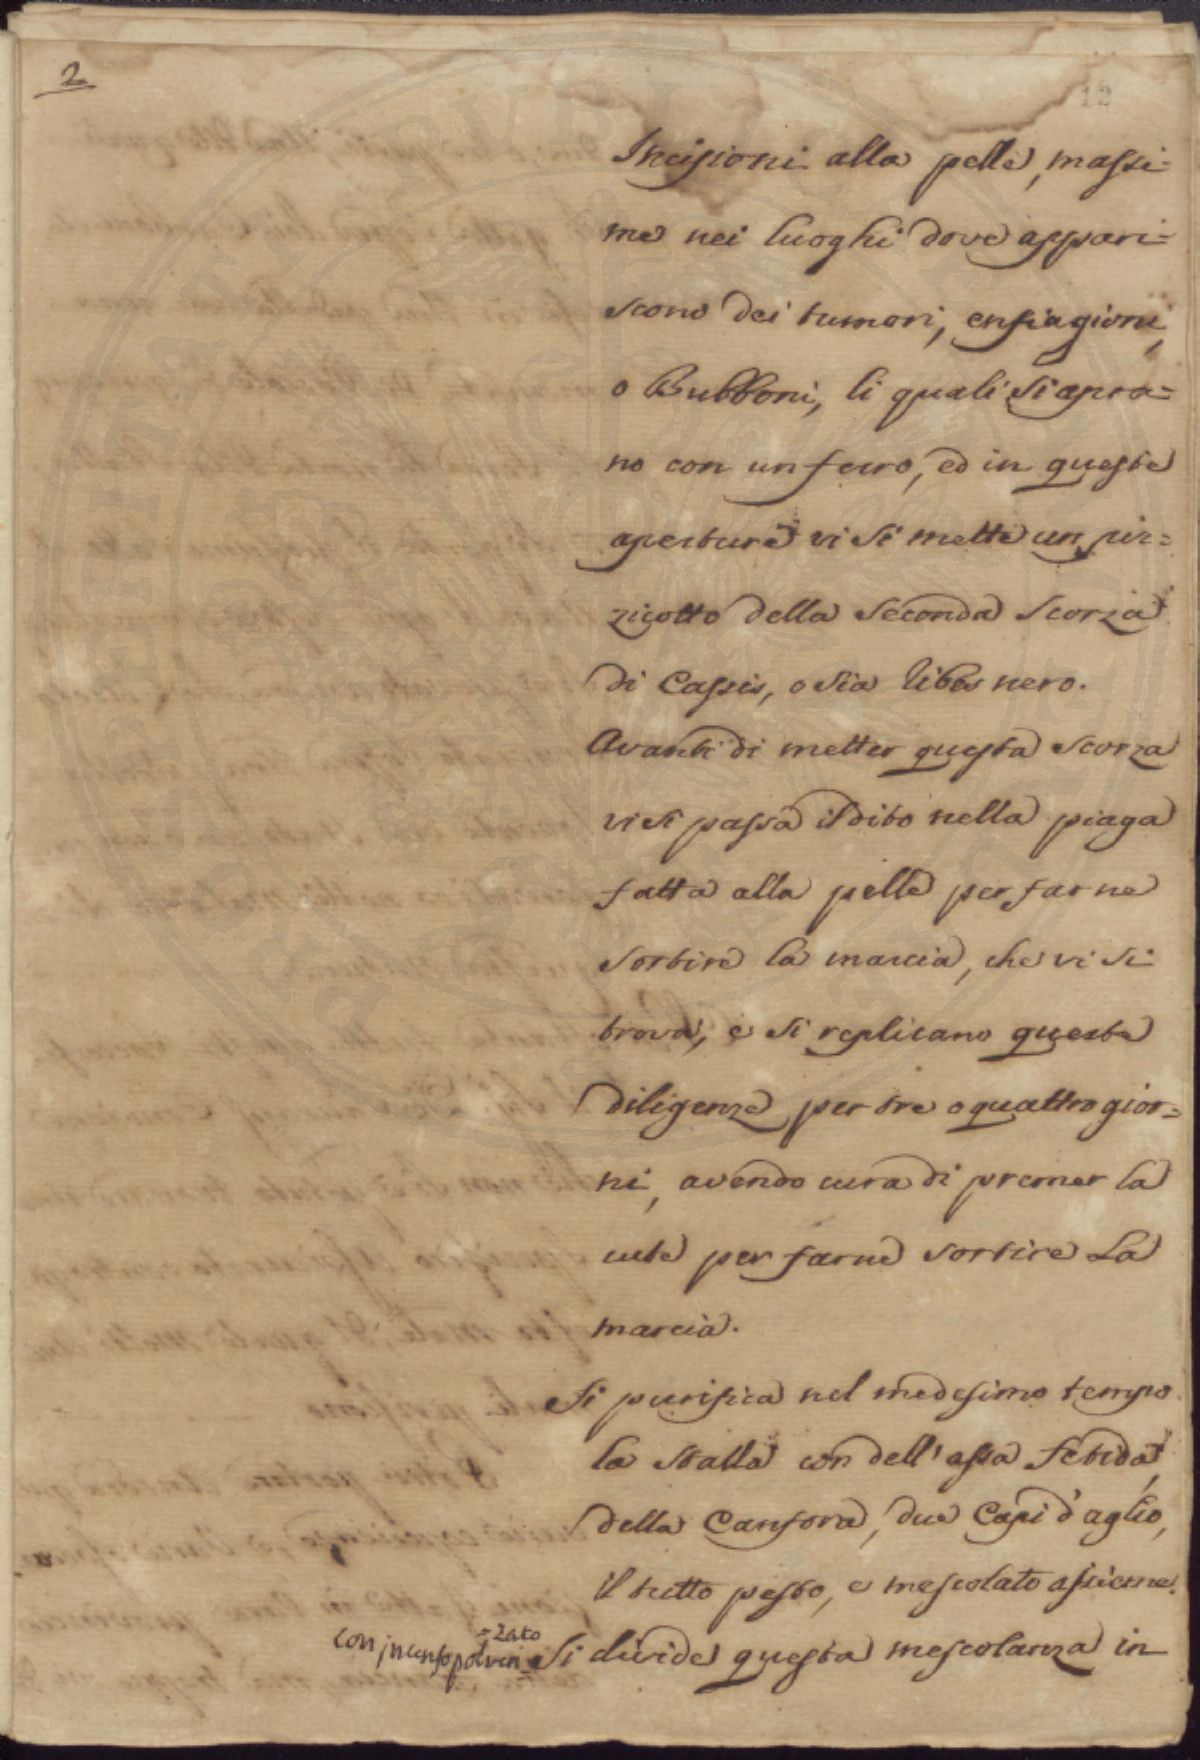 2
12
Incisioni alla pelle, massi=
me nei luoghi dove appari=
scono dei tumori, enfiagioni,
o Bubboni, li quali si apra=
no con un ferro, ed in queste
aperture vi si mette un piz=
zicotto della seconda scorza
di Cassis, o sia Ribes nero.
Avanti di metter questa scorza
vi si passa il dito nella piaga
fatta alla pelle per farne
sortire la marcia, che vi si
trova, e si replicano queste
diligenze per tre o quattro gior=
ni, avendo cura di premer la
cute per farne sortire La
marcia.
Si purifica nel medesimo tempo
la stalla con dell'assa fetida,
della Canfora, due Capi d'aglio,
il tutto pesto, e mescolato assieme
con incenso polveri=zato
Si divide questa mescolanza in